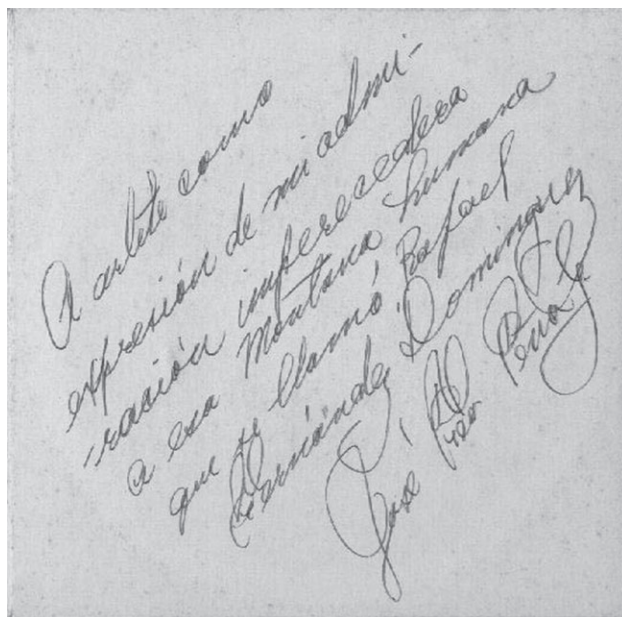 A arlete como
expresión de mi admi-
-ración imperecedera
a esa Montana humana
que se llamó Rafael
Hernández Domínguez
José Fco Peña